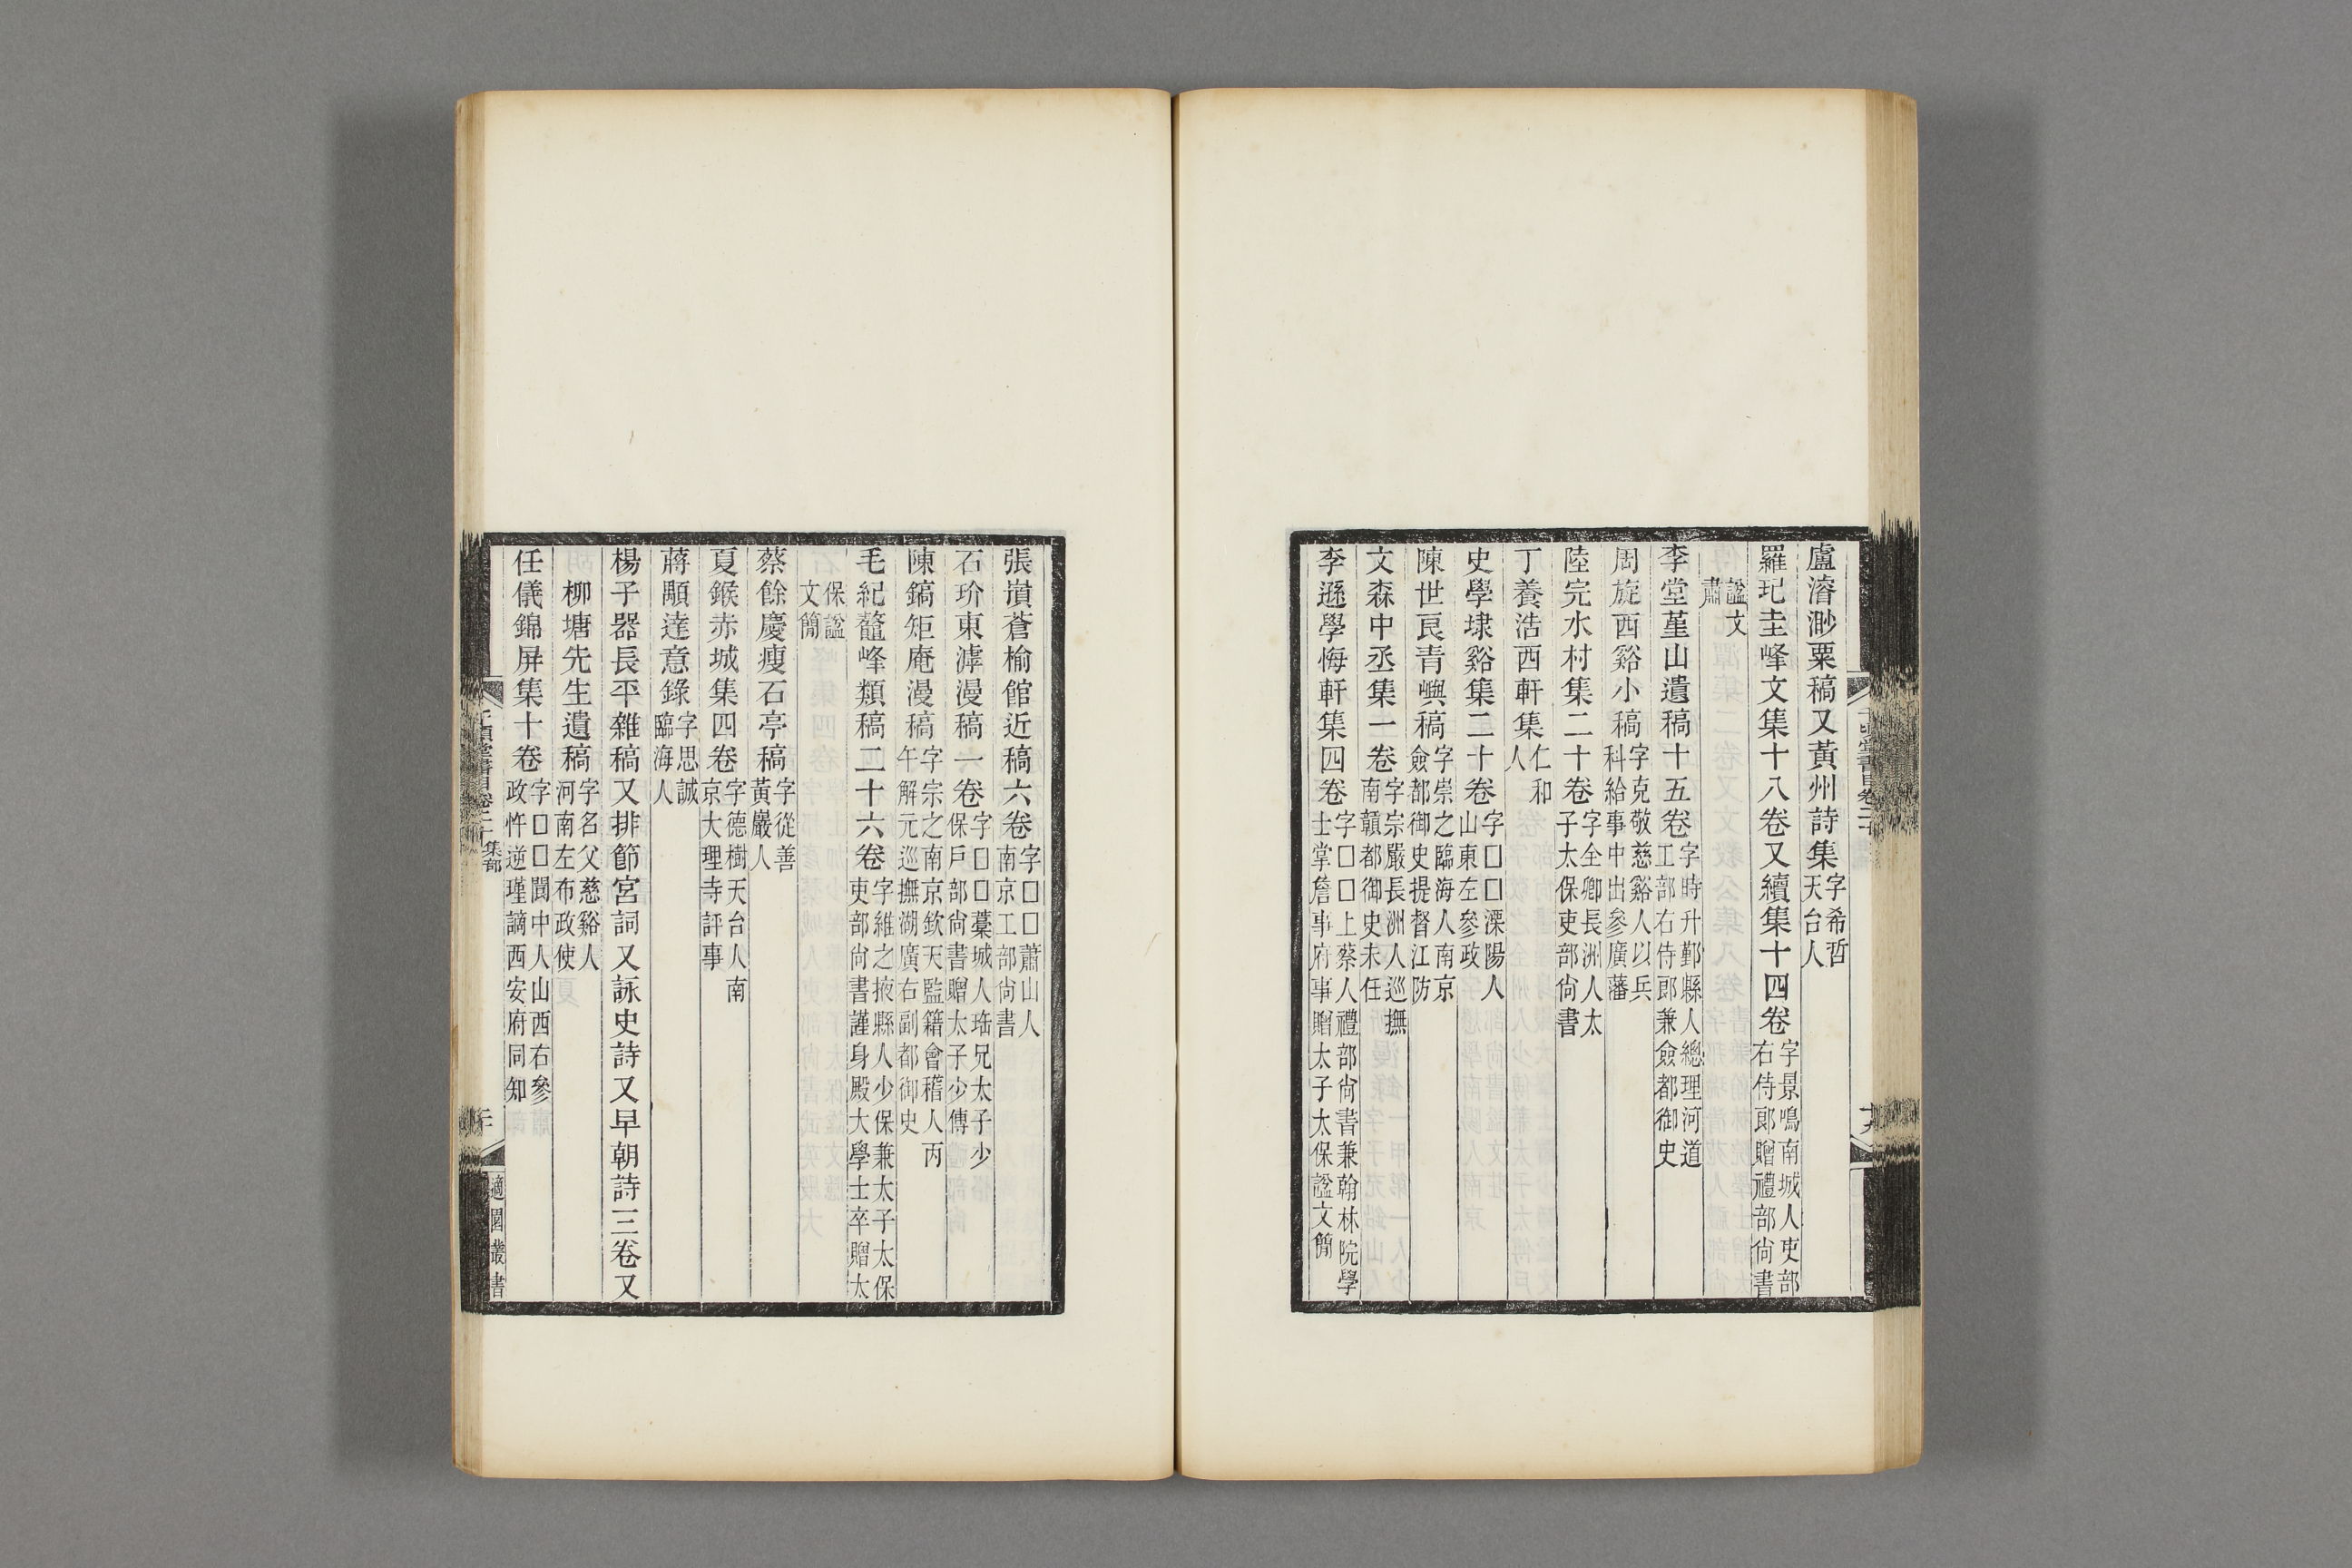 盧濬渺粟稿又黃州詩集字希哲天台人
羅玘圭峰文集十八卷又續集十四卷字景鳴南城人吏部右侍郎贈禮部尙書
諡文肅
李堂堇山遺稿十五卷字時升鄞縣人總理河道工部右侍郎兼僉都御史
周旋西谿小稿字克敬慈谿人以兵科給事中出參廣藩
陸完水村集二十卷字全卿長洲人太子太保吏部尙書
丁養浩西軒集仁和人
史學埭谿集二十卷字□□溧陽人山東左參政
陳世良青嶼稿字崇之臨海人南京僉都御史提督江防
文森中丞集一卷字宗嚴長洲人巡撫南贛都御史未任
李遜學悔軒集四卷字□□上蔡人禮部尙書兼翰林院學士掌詹事府事贈太子太保諡文簡
張嵿蒼榆館近稿六卷字□□蕭山人南京工部尙書
石玠東滹漫稿一卷字□□藁城人珤兄太子少保戶部尙書贈太子少傅
陳鎬矩庵漫稿字宗之南京欽天監籍會稽人丙午解元巡撫湖廣右副都御史
毛紀鼇峰類稿二十六卷字維之掖縣人少保兼太子太保吏部尙書謹身殿大學士卒贈太
保諡文簡
蔡餘慶瘦石亭稿字從善黃嚴人
夏鍭赤城集四卷字德樹天台人南京大理寺評事
蔣顒達意錄字思誠臨海人
楊子器長平雜稿又排節宮詞又詠史詩又早朝詩三卷又
柳塘先生遺稿字名父慈谿人河南左布政使
任儀錦屏集十卷字□□閬中人山西右參政忤逆瑾謫西安府同知
千頃堂書目卷二十集部
適園叢書